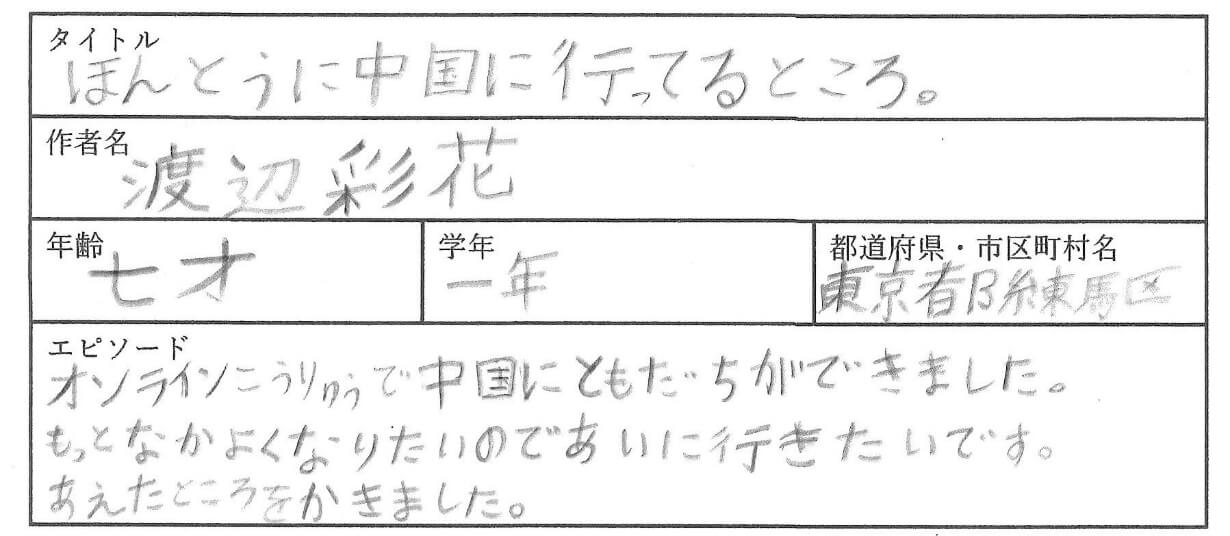 タイトル
ほんとうに中国に行ってるところ。
作者名
渡辺彩花
年齢
七才
学年
一年
都道府県・市区町村名
東京都練馬区
エピソード
オンラインこうりゅうで中国にともだちができました。
もっとなかよくなりたいのであいに行きたいです。
あえたところをかきました。